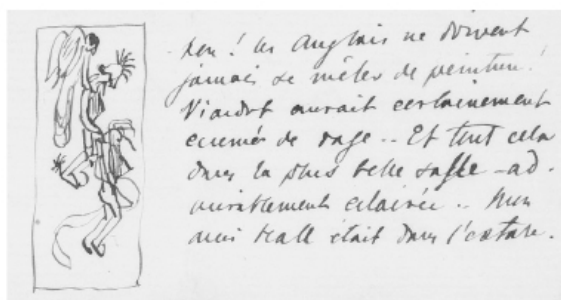 peu! les Anglais ne doivent
jamais se mêler de peinture!
Viardot aurait certainement
écumé de rage -- Et tout cela
dans la plus belle salle - ad-
mirablement éclairée -- Mon
ami Hall était dans l'extase.